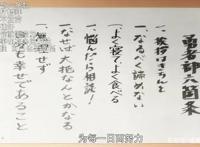 勇者部六箇条
一、挨拶はきちんと
一、なるべく諦めない
一、よく寝て、よく食べる
一、悩んだら相談!
一、なせば大抵なんとかなる
一、無理せず
自分も幸せであること
为每一日而努力